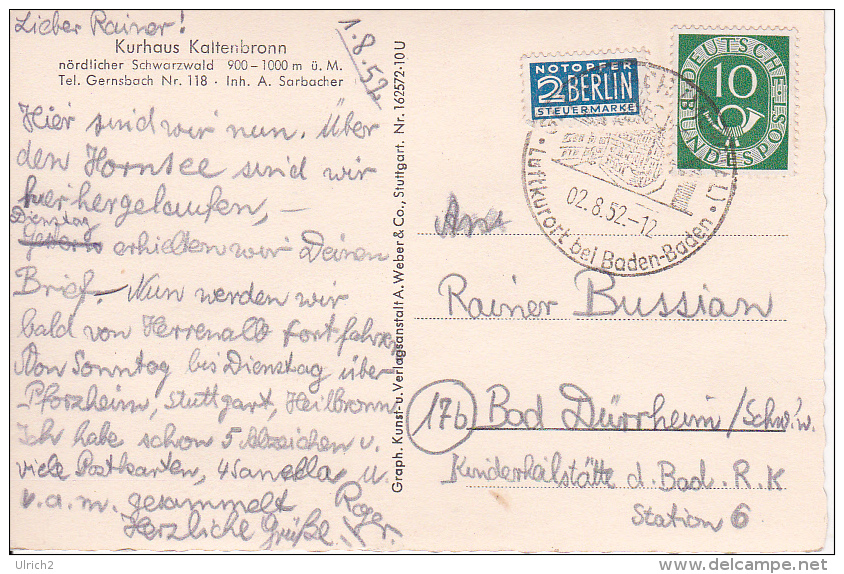 Lieber Rainer!
1.8.52
Kurhaus Kaltenbronn
nördlicher Schwarzwald 900–1000 m ü. M.
Tel. Gernsbach Nr. 118 · Inh. A. Sarbacher
Hier sind wir nun. Über
den Hornsee sind wir
hierhergelaufen, –
Dienstag
erhielten wir Deinen
Brief. Nun werden wir
bald von Herrenalb fortfahren
Von Sonntag bis Dienstag über
Pforzheim, Stuttgart, Heilbronn
Ich habe schon 5 Abzeichen u.
viele Postkarten, 4 Sanella u.
v.a.m. gesammelt
Herzliche Grüße
Roger.
Graph. Kunst- u. Verlagsanstalt A. Weber & Co., Stuttgart. Nr. 162572-10 U
NOTOPFER
2 BERLIN
STEUERMARKE
DEUTSCHE
10
BUNDESPOST
02.8.52.-12
Luftkurort bei Baden-Baden
An
Rainer Bussian
(17b) Bad Dürrheim/Schw'w.
Kinderheilstätte d. Bad. R. K
Station 6
Ulrich2
delcampe.net